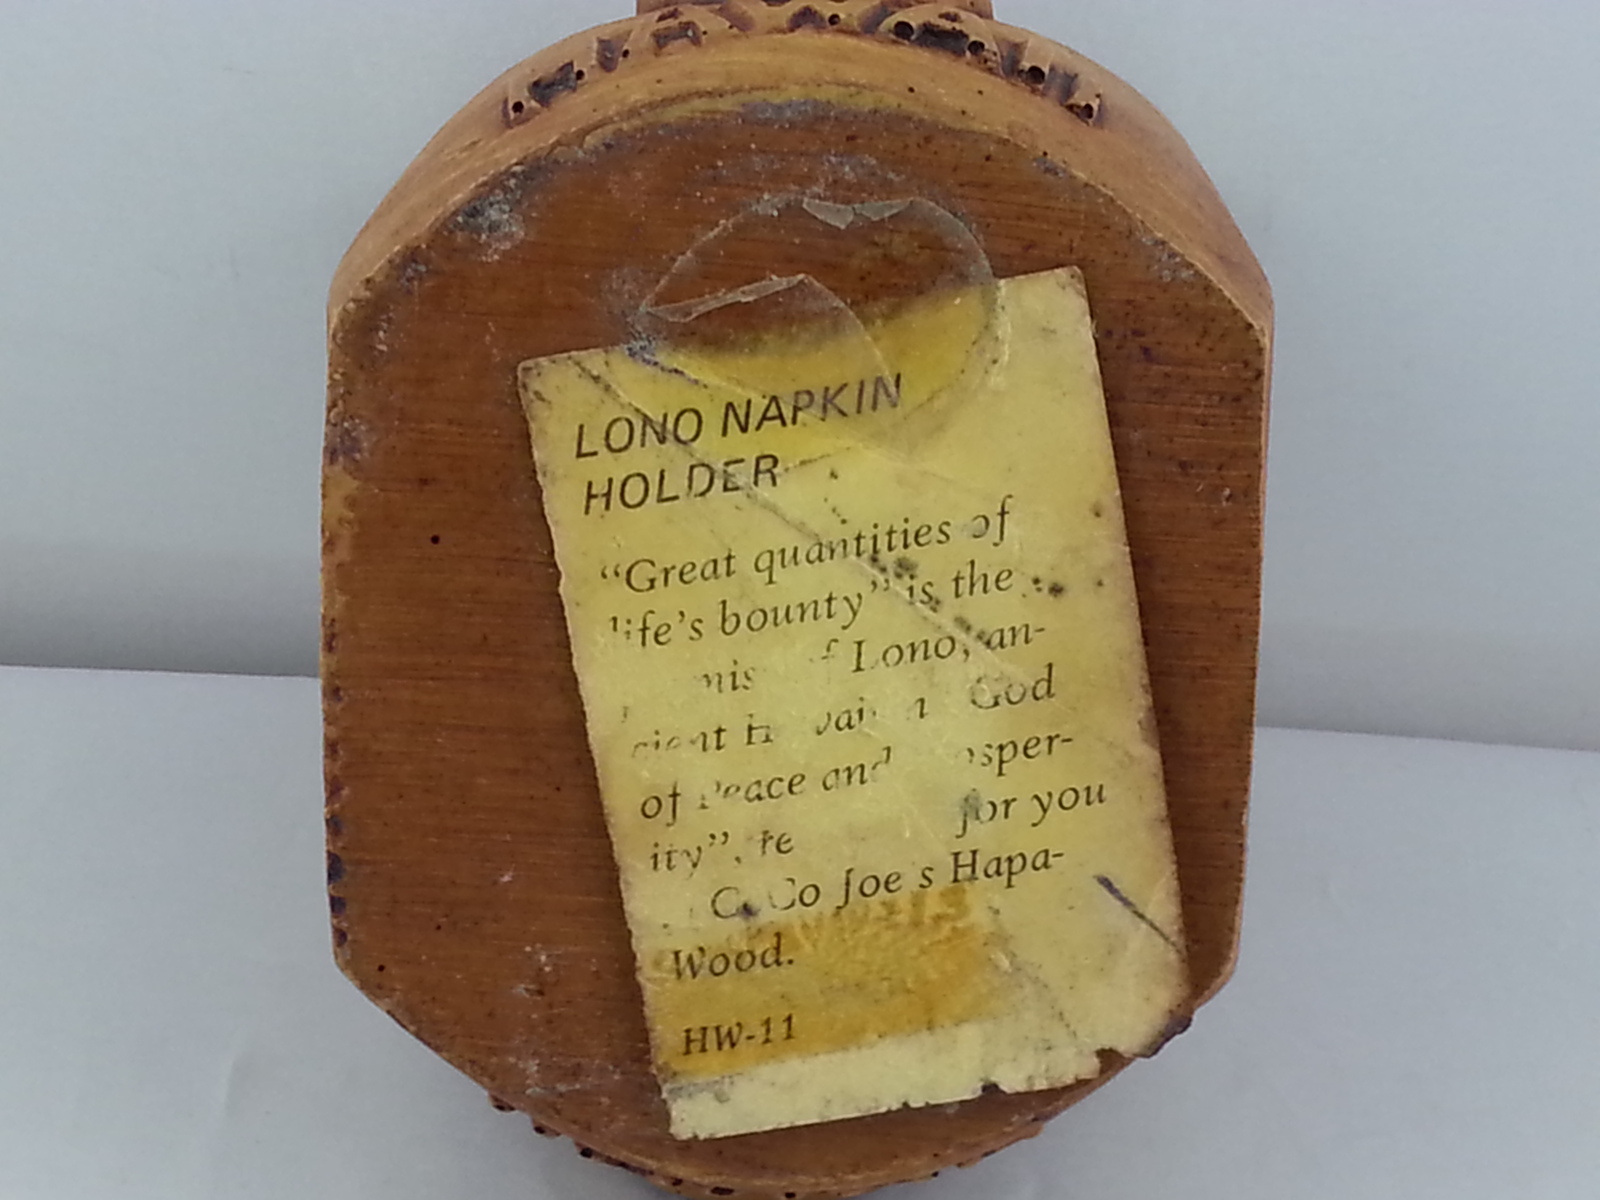 LONO NAPKIN
HOLDER
“Great quantities of
life's bounty” is the
of Lono, an-
cient Hawaiian God
of Peace and
ity”, for you
CoCo Joe's Hapa-
Wood.
HW-11